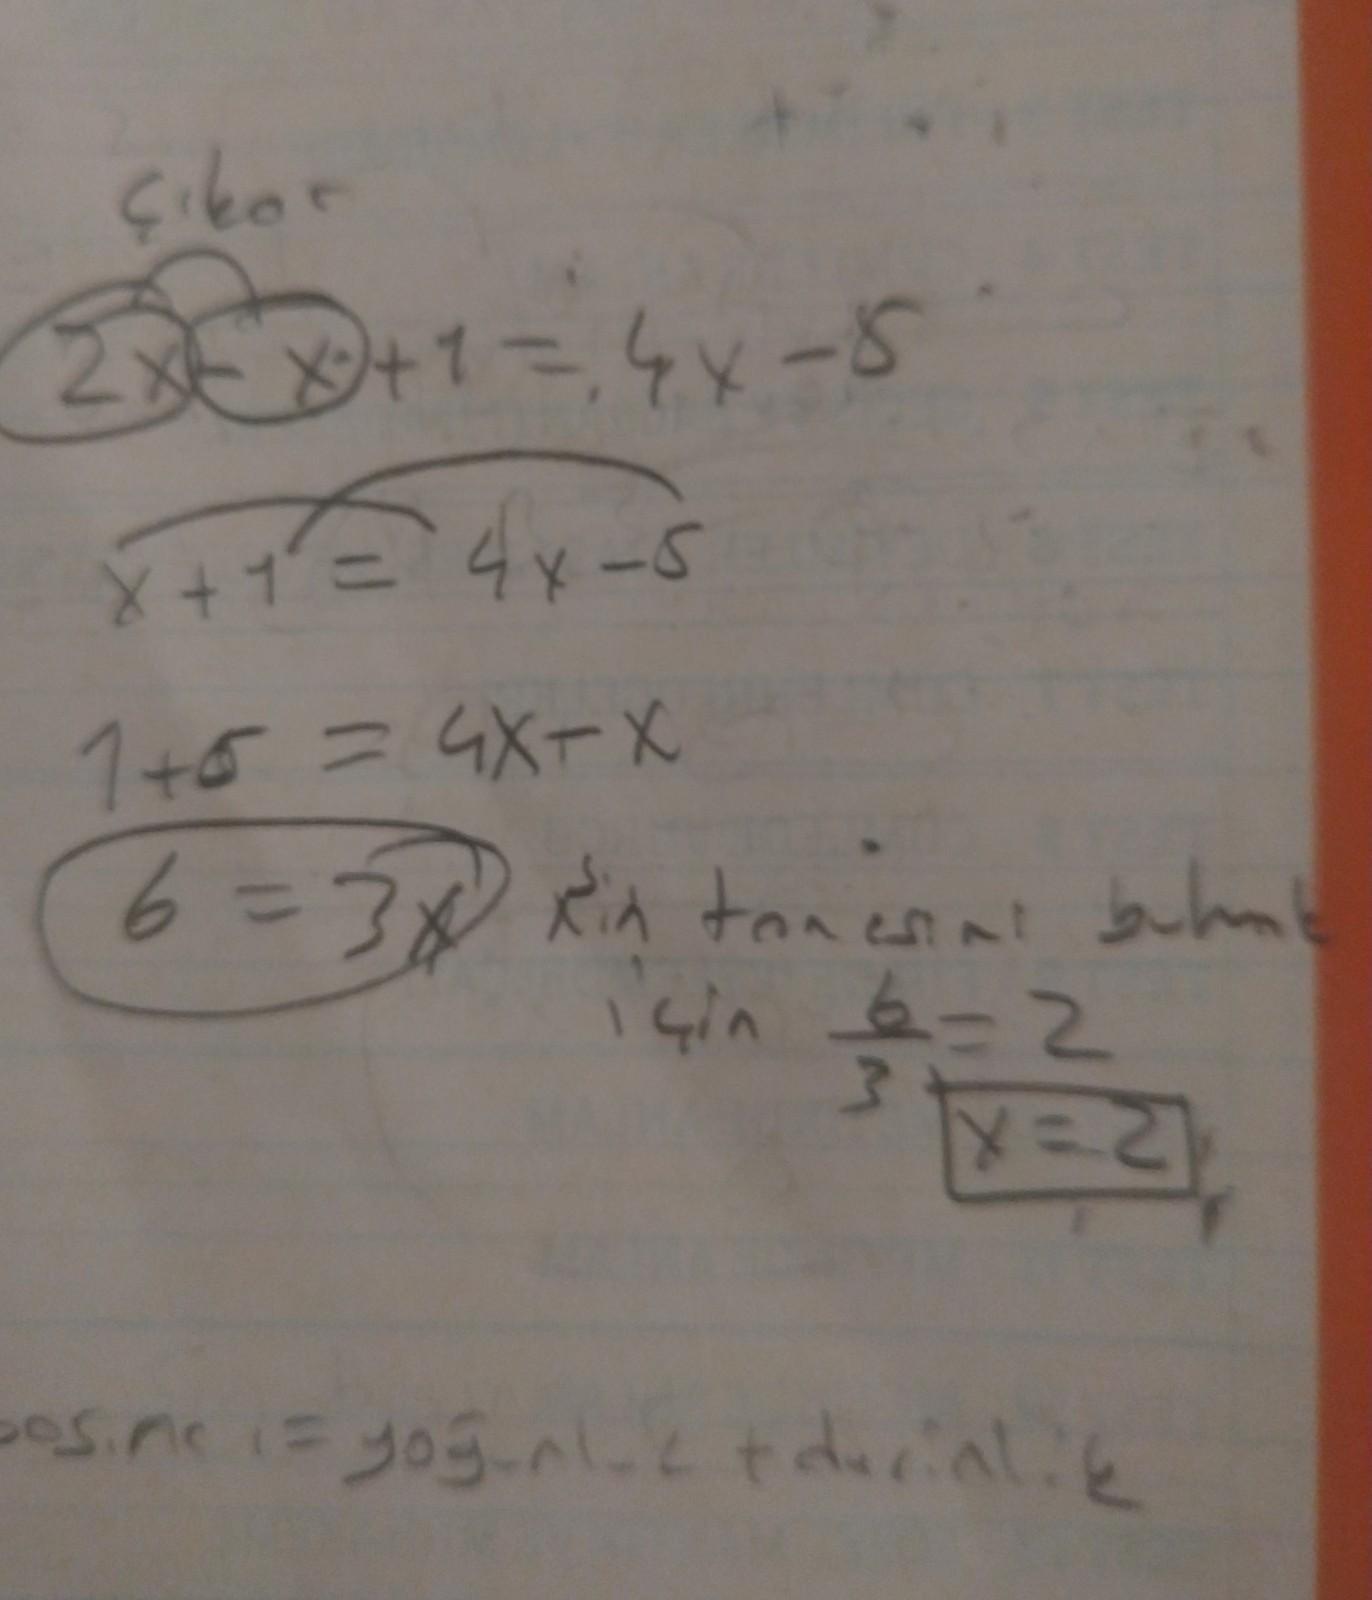 çıkar
2x - x + 1 = 4x - 5
x + 1 = 4x - 5
1 + 5 = 4x - x
6 = 3x x'in tanesini bulmak
için 6/3 = 2
x = 2
basıncı = yoğunluk + derinlik